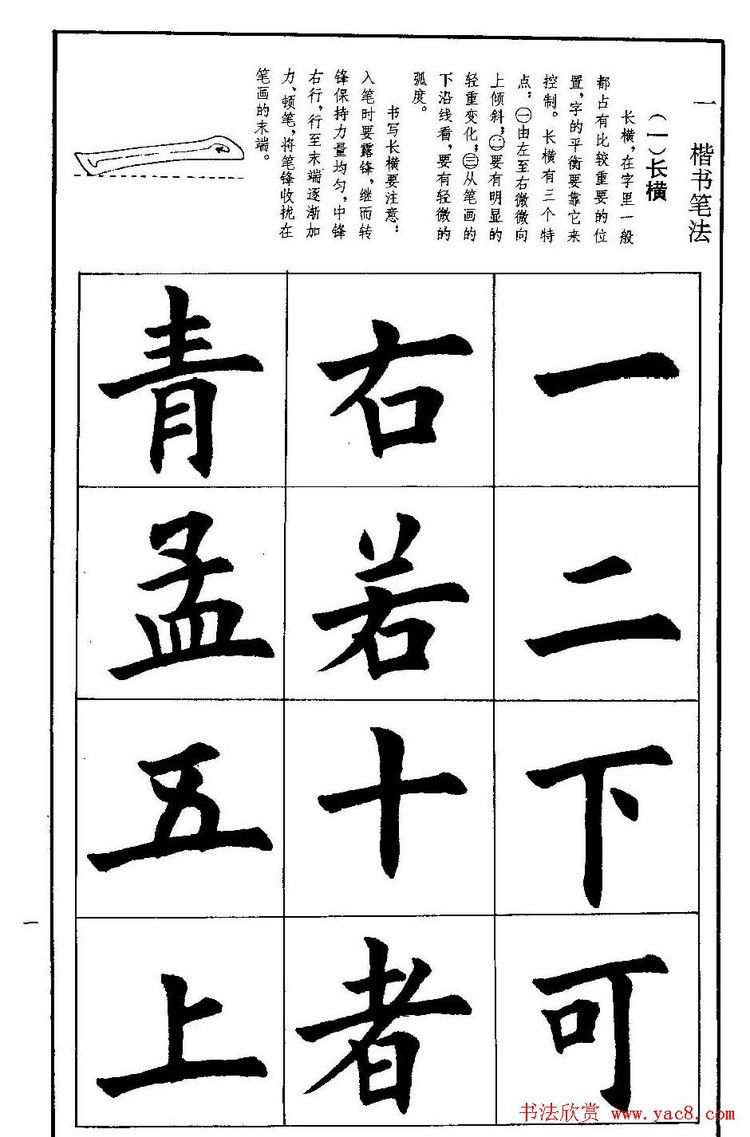 一 楷书笔法
（一）长横
长横，在字里一般
都占有比较重要的位
置，字的平衡要靠它来
控制。长横有三个特
点：㊀由左至右微微向
上倾斜；㊁要有明显的
轻重变化；㊂从笔画的
下沿线看，要有轻微的
弧度。
书写长横要注意：
入笔时要露锋，继而转
锋保持力量均匀，中锋
右行，行至末端逐渐加
力、顿笔，将笔锋收拢在
笔画的末端。
一
二
下
可
右
若
十
者
青
孟
五
上
一
书法欣赏 www.yac8.com